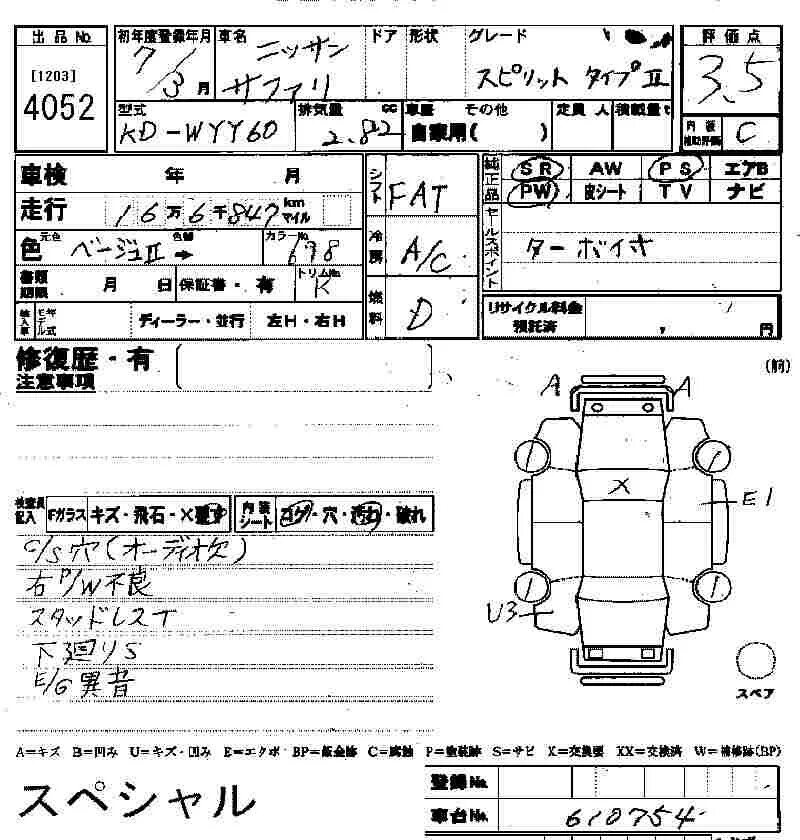 出品No. 初年度登録年月 車名 ドア 形状 グレード 評価点
[1203] 7/3月 ニッサン
4052 サファリ スピリット タイプⅡ 3.5
型式 排気量 cc 車歴 その他 定員 人 積載量t 内装補助評価
KD-WYY60 2.82 自家用( ) C
車検 年 月 シフト FAT 純正品 SR AW PS エアB
PW 皮シート TV ナビ
走行 16万6千847 km マイル
色 元色 ベージュⅡ 色替 → カラーNo. 698 冷房 A/C セールスポイント ターボイオ
書類期限 月 日 保証書・有 トリムNo. K
輸入車 モデル年式 ディーラー・並行 左H・右H 燃料 D リサイクル料金預託済 , 円
修復歴・有
注意事項
(前)
A A
X E1
U3
検査員記入 Fガラス キズ・飛石・×要す 内装シート コゲ・穴・汚れ・破れ
C/S穴(オーディオ欠)
右P/W不良
スタッドレスT
下廻りS
E/G異音
スペア
A=キズ B=凹み U=キズ・凹み E=エクボ BP=鈑金跡 C=腐蝕 P=塗装跡 S=サビ X=交換要 XX=交換済 W=補修跡(BP)
スペシャル
登録No.
車台No. 610754